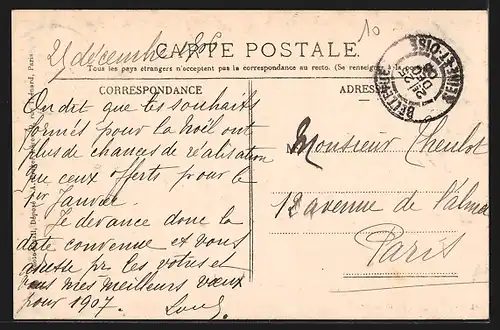 10
25 décembre 1906
CARTE POSTALE
Tous les pays étrangers n'acceptent pas la correspondance au recto. (Se renseigner à la
CORRESPONDANCE
ADRES
BELLEVUE
SEINE-ET-OISE
On dit que les souhaits
formés pour la Noël ont
plus de chances de réalisation
que ceux offerts pour le
1er Janvier.
Je devance donc la
date convenue et vous
adresse pr les vôtres et
vous mes meilleurs vœux
pour 1907.
Monsieur
12 avenue de
Paris